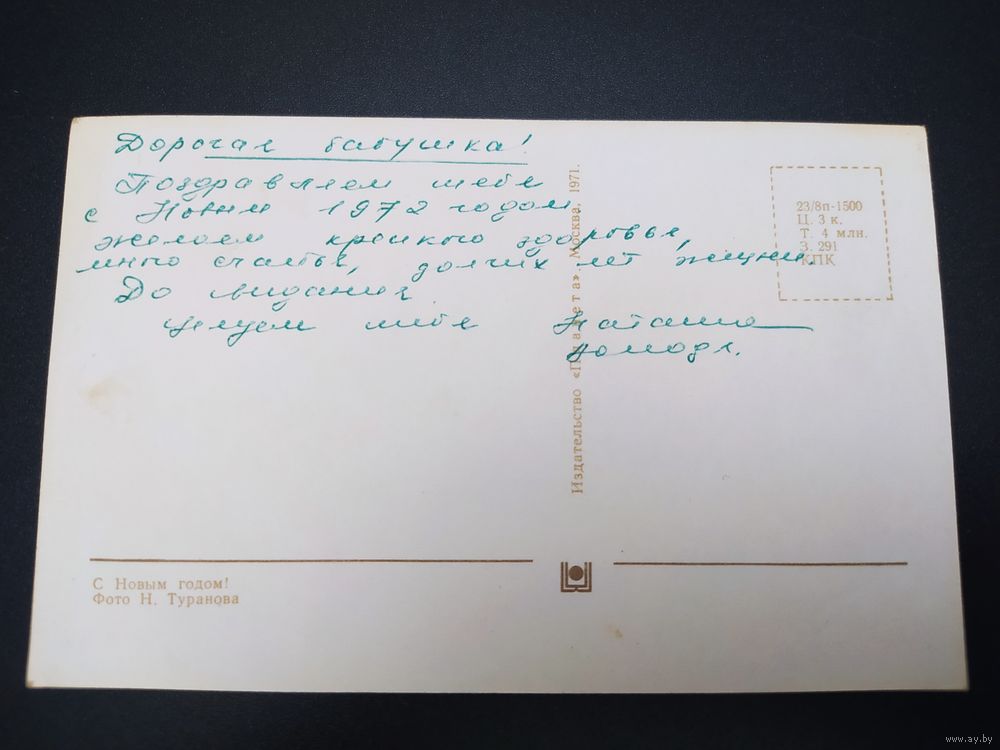 Дорогая бабушка!
Поздравляем тебя
с Новым 1972 годом,
желаем крепкого здоровья,
много счастья, долгих лет жизни
До свидания
Целуем тебя Наташа
23/8п-1500
Ц. 3 к.
Т. 4 млн.
З. 291
КПК
Издательство «Планета». Москва. 1971.
С Новым годом!
Фото Н. Туранова
www.ay.by